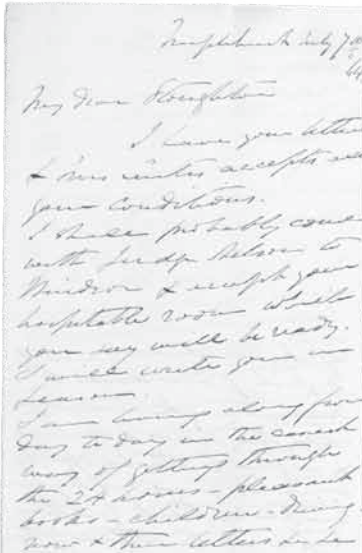 July 7
My dear Stoughton
I have your letter
& accepts
your conditions.
I shall probably come
with Judge Nelson to
Windsor & accept your
hospitable room which
you say will be ready.
I will write you in
season.
I am along from
day to day in the
way of getting through
the 24 hours - pleasant
books - children - driving
now & then letters